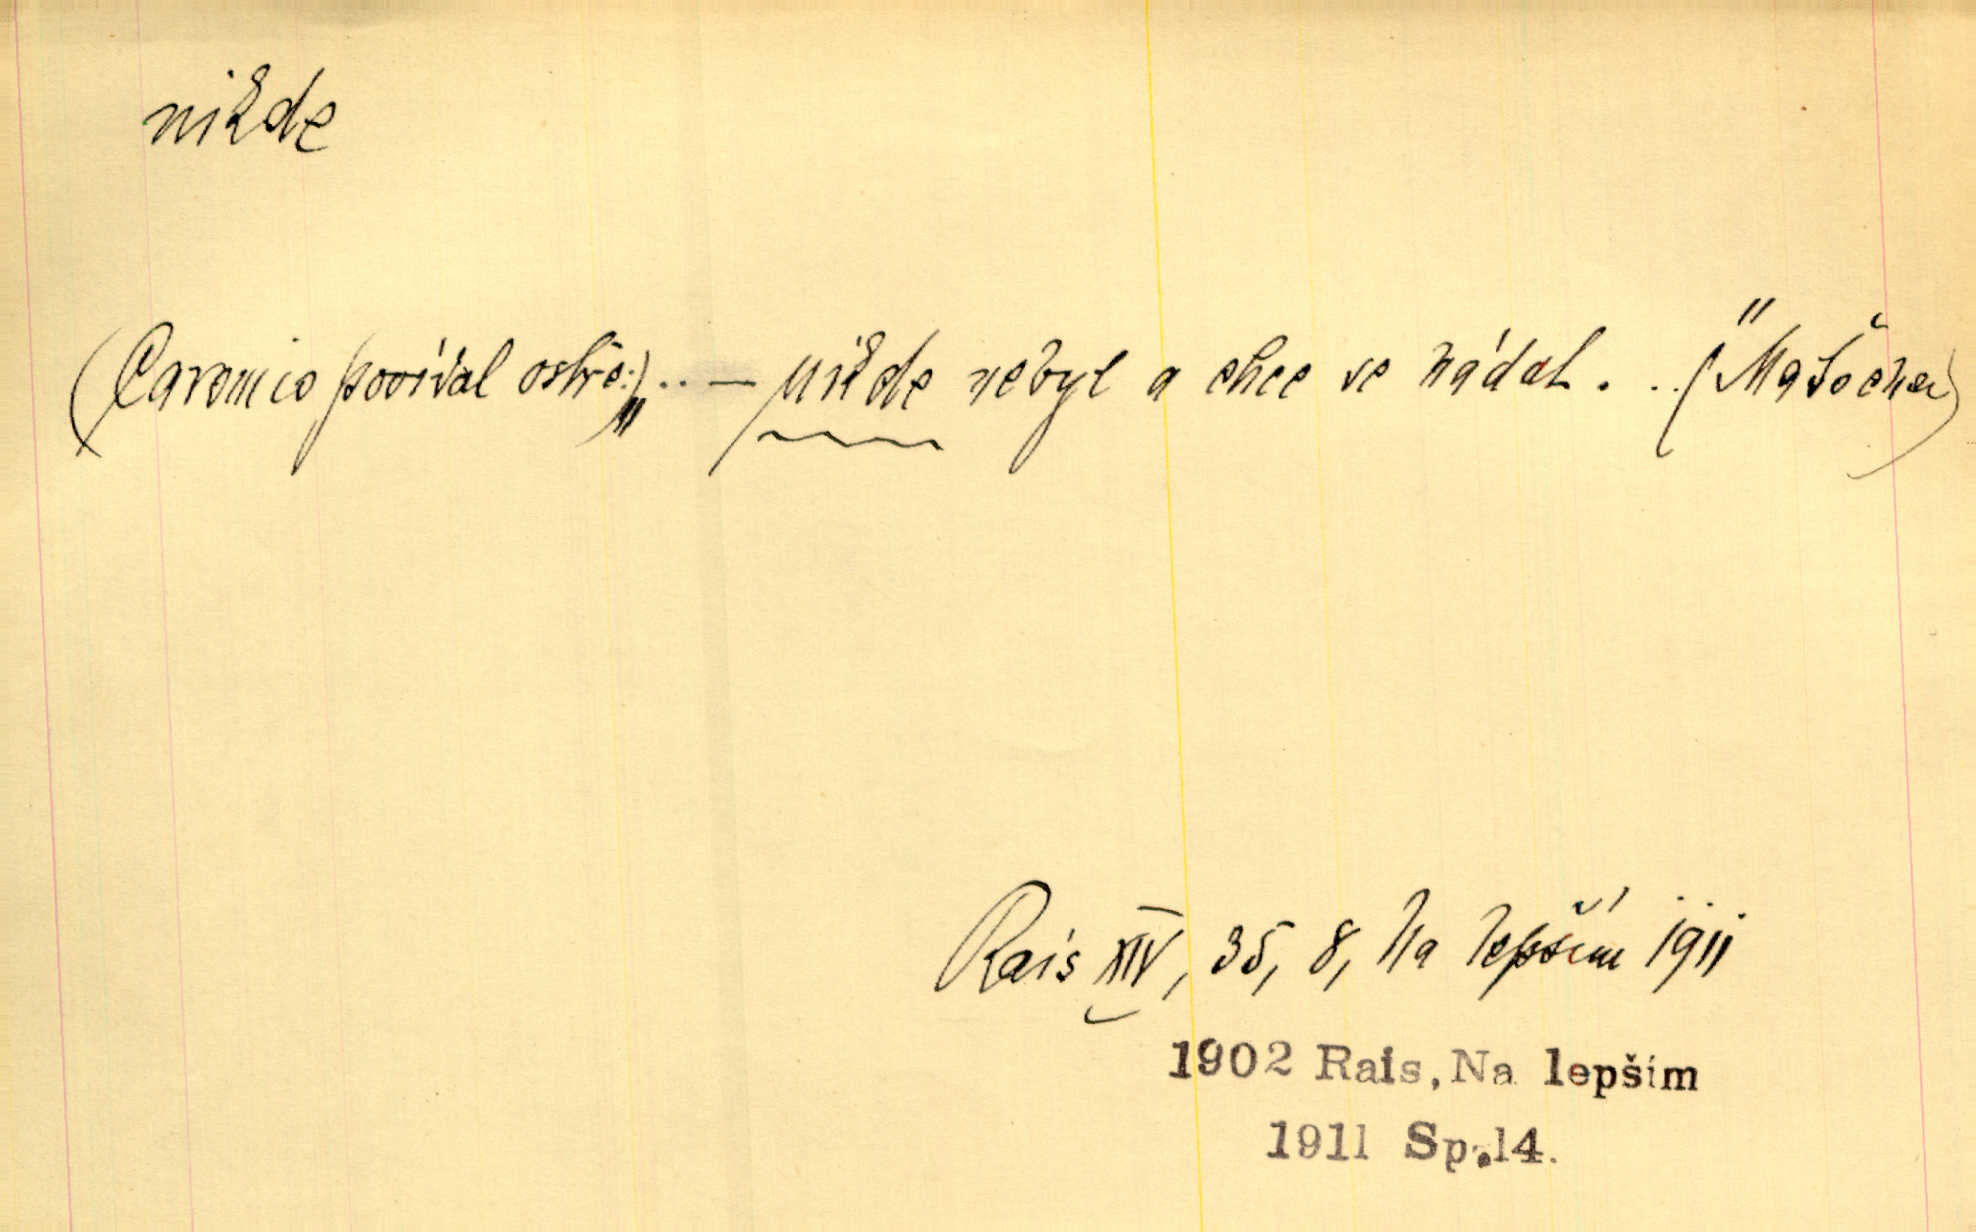 nikde
povídal ostře:) „.. — nikde nebyl a chce se hádat . .." (Matoěha)
Rais XIV, 35, 8, Na lepším 1911
1902 Rais, Na lepším
1911 Sp.14.